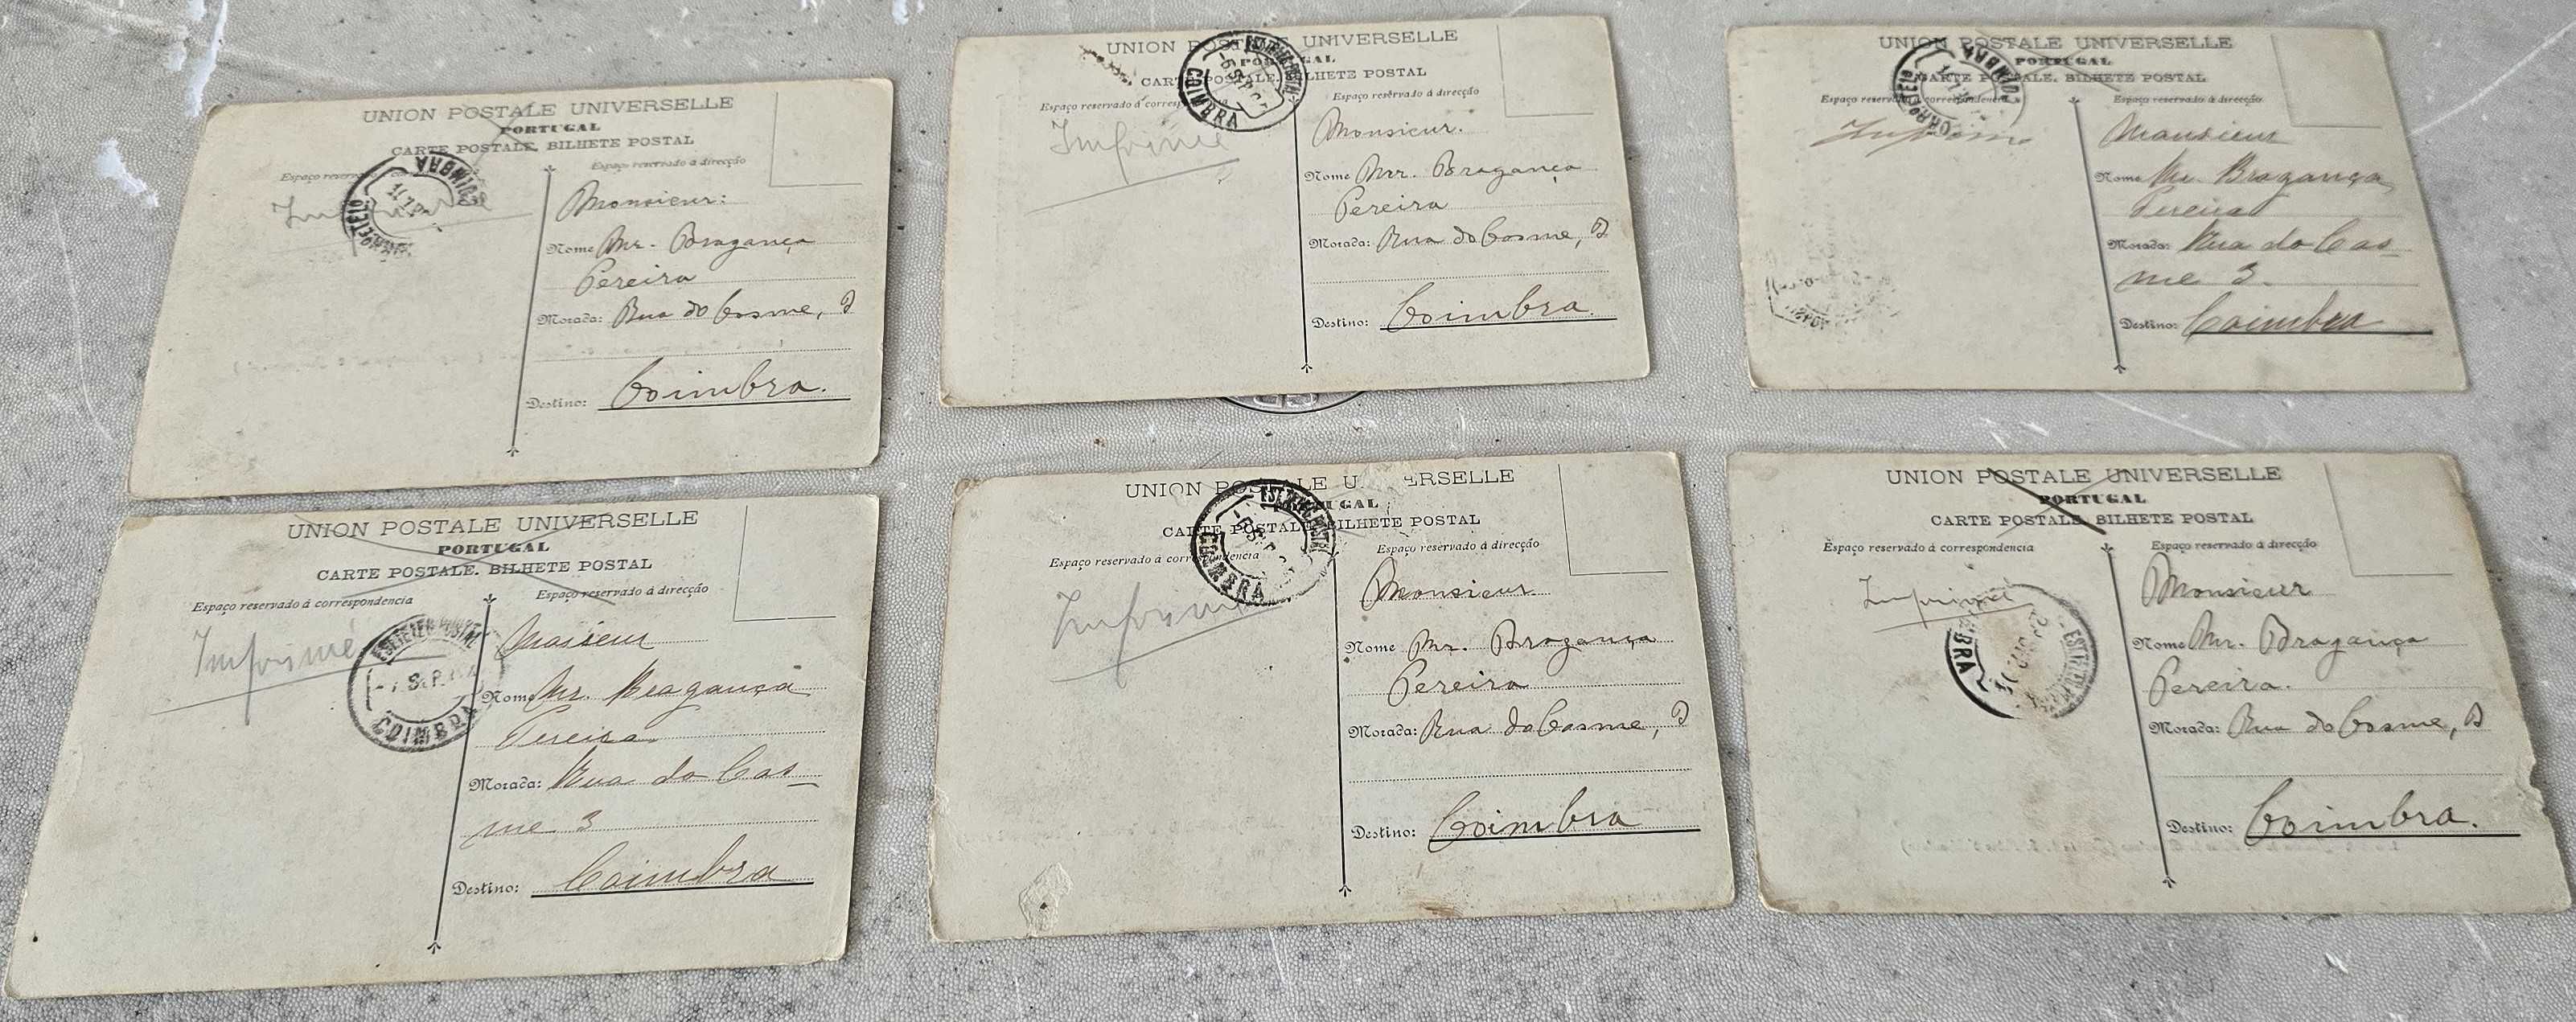 UNION POSTALE UNIVERSELLE
PORTUGAL
CARTE POSTALE. BILHETE POSTAL
Espaço reservado á direcção
COIMBRA
Monsieur:
Nome Mr. Bragança
Pereira
Morada: Rua do Cosme, 3
Destino: Coimbra.
UNION POSTALE UNIVERSELLE
CARTE POSTALE. BILHETE POSTAL
Espaço reservado á direcção
COIMBRA
Imprimé
Monsieur.
Nome Mr. Bragança
Pereira
Morada: Rua do Cosme, 3
Destino: Coimbra.
UNION POSTALE UNIVERSELLE
PORTUGAL
CARTE POSTALE. BILHETE POSTAL
Espaço reservado á correspondencia
Espaço reservado á direcção
COIMBRA
Monsieur
Nome Mr. Bragança
Pereira
Morada: Rua do Cos-
me 3.
Destino: Coimbra
UNION POSTALE UNIVERSELLE
PORTUGAL
CARTE POSTALE. BILHETE POSTAL
Espaço reservado á correspondencia
Espaço reservado á direcção
Imprimé
COIMBRA
Nome Mr. Bragança
Pereira
Morada: Rua do Cos-
me 3
Destino: Coimbra
UNION POSTALE U ERSELLE
CARTE POSTALE. BILHETE POSTAL
Espaço reservado á correspondencia
Espaço reservado á direcção
Imprimé
Monsieur.
Nome Mr. Bragança
Pereira
Morada: Rua do Cosme, 3
Destino: Coimbra
UNION POSTALE UNIVERSELLE
PORTUGAL
CARTE POSTALE. BILHETE POSTAL
Espaço reservado á correspondencia
Espaço reservado á direcção
Imprimé
Monsieur
Nome Mr. Bragança
Pereira.
Morada: Rua do Cosme, 3
Destino: Coimbra.